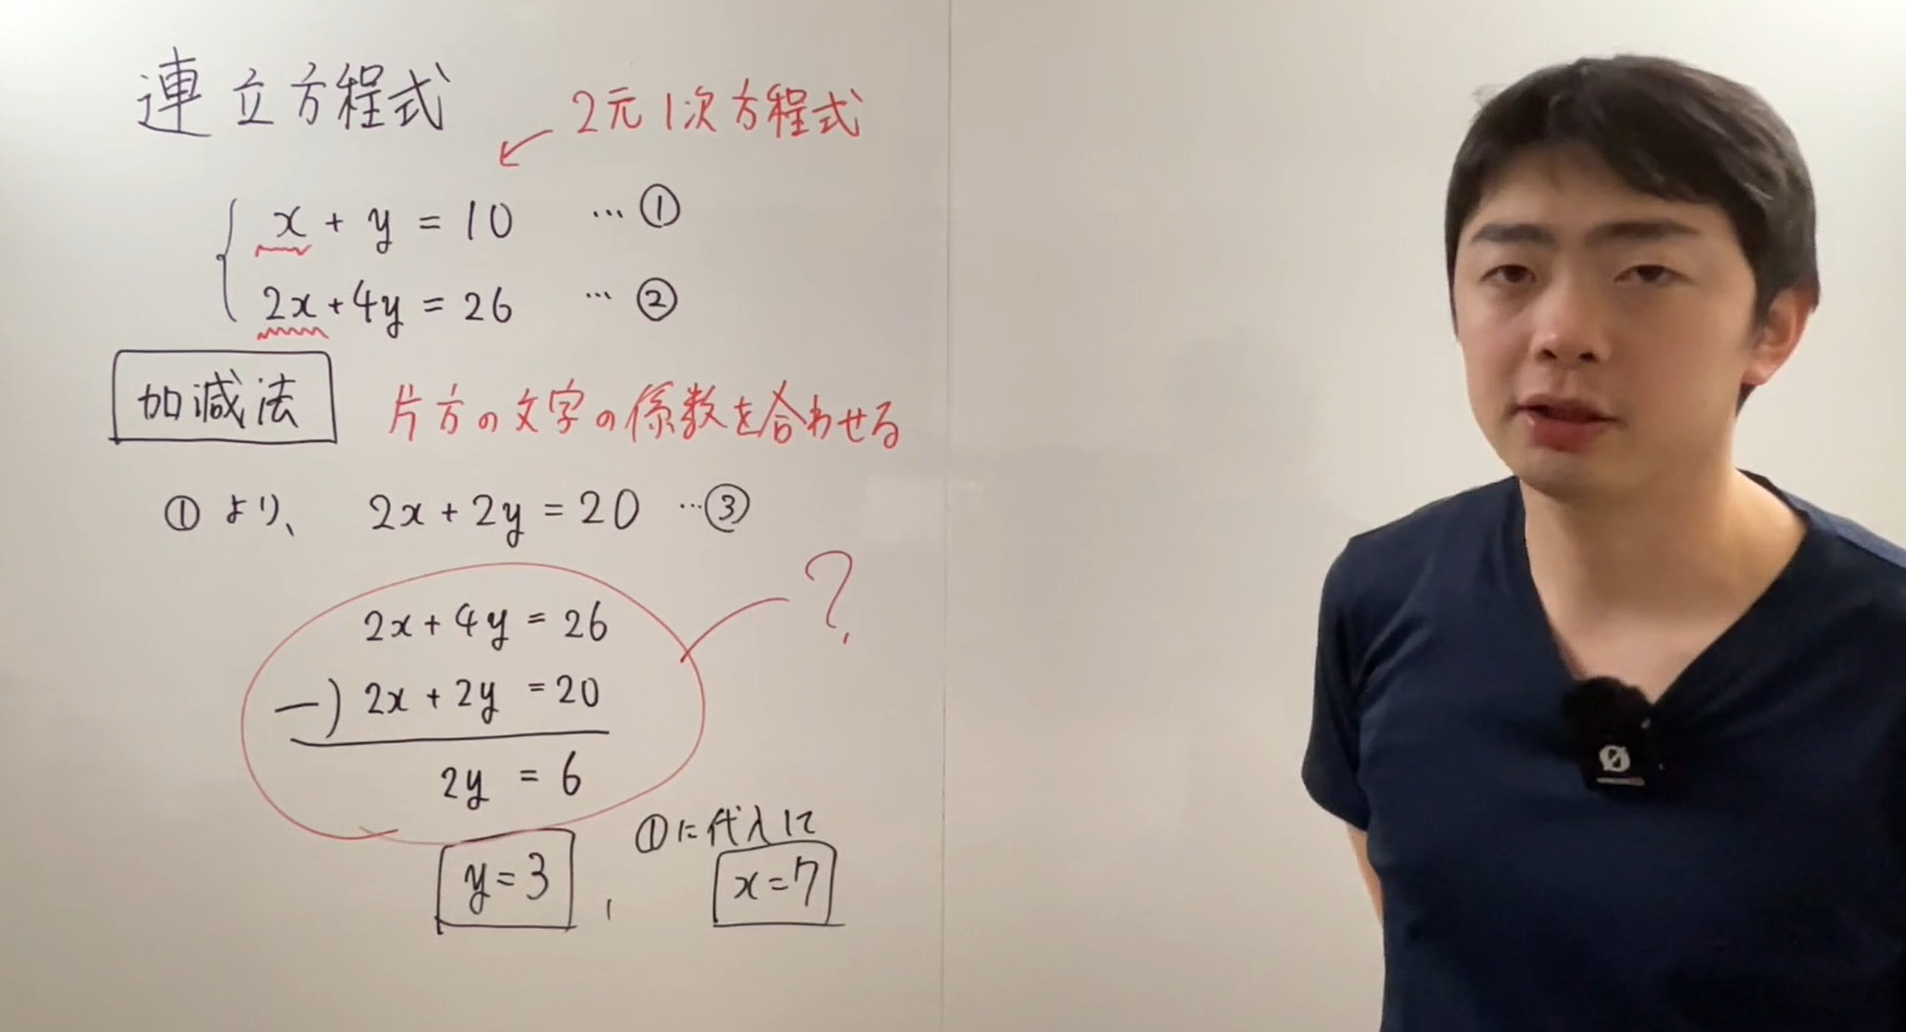 連立方程式
2元1次方程式
x + y = 10 … ①
2x+4y = 26 … ②
加減法 片方の文字の係数を合わせる
①より、 2x+2y = 20 …③
2x+4y = 26
－) 2x+2y = 20
?
2y = 6
①に代入して
y=3 , x=7